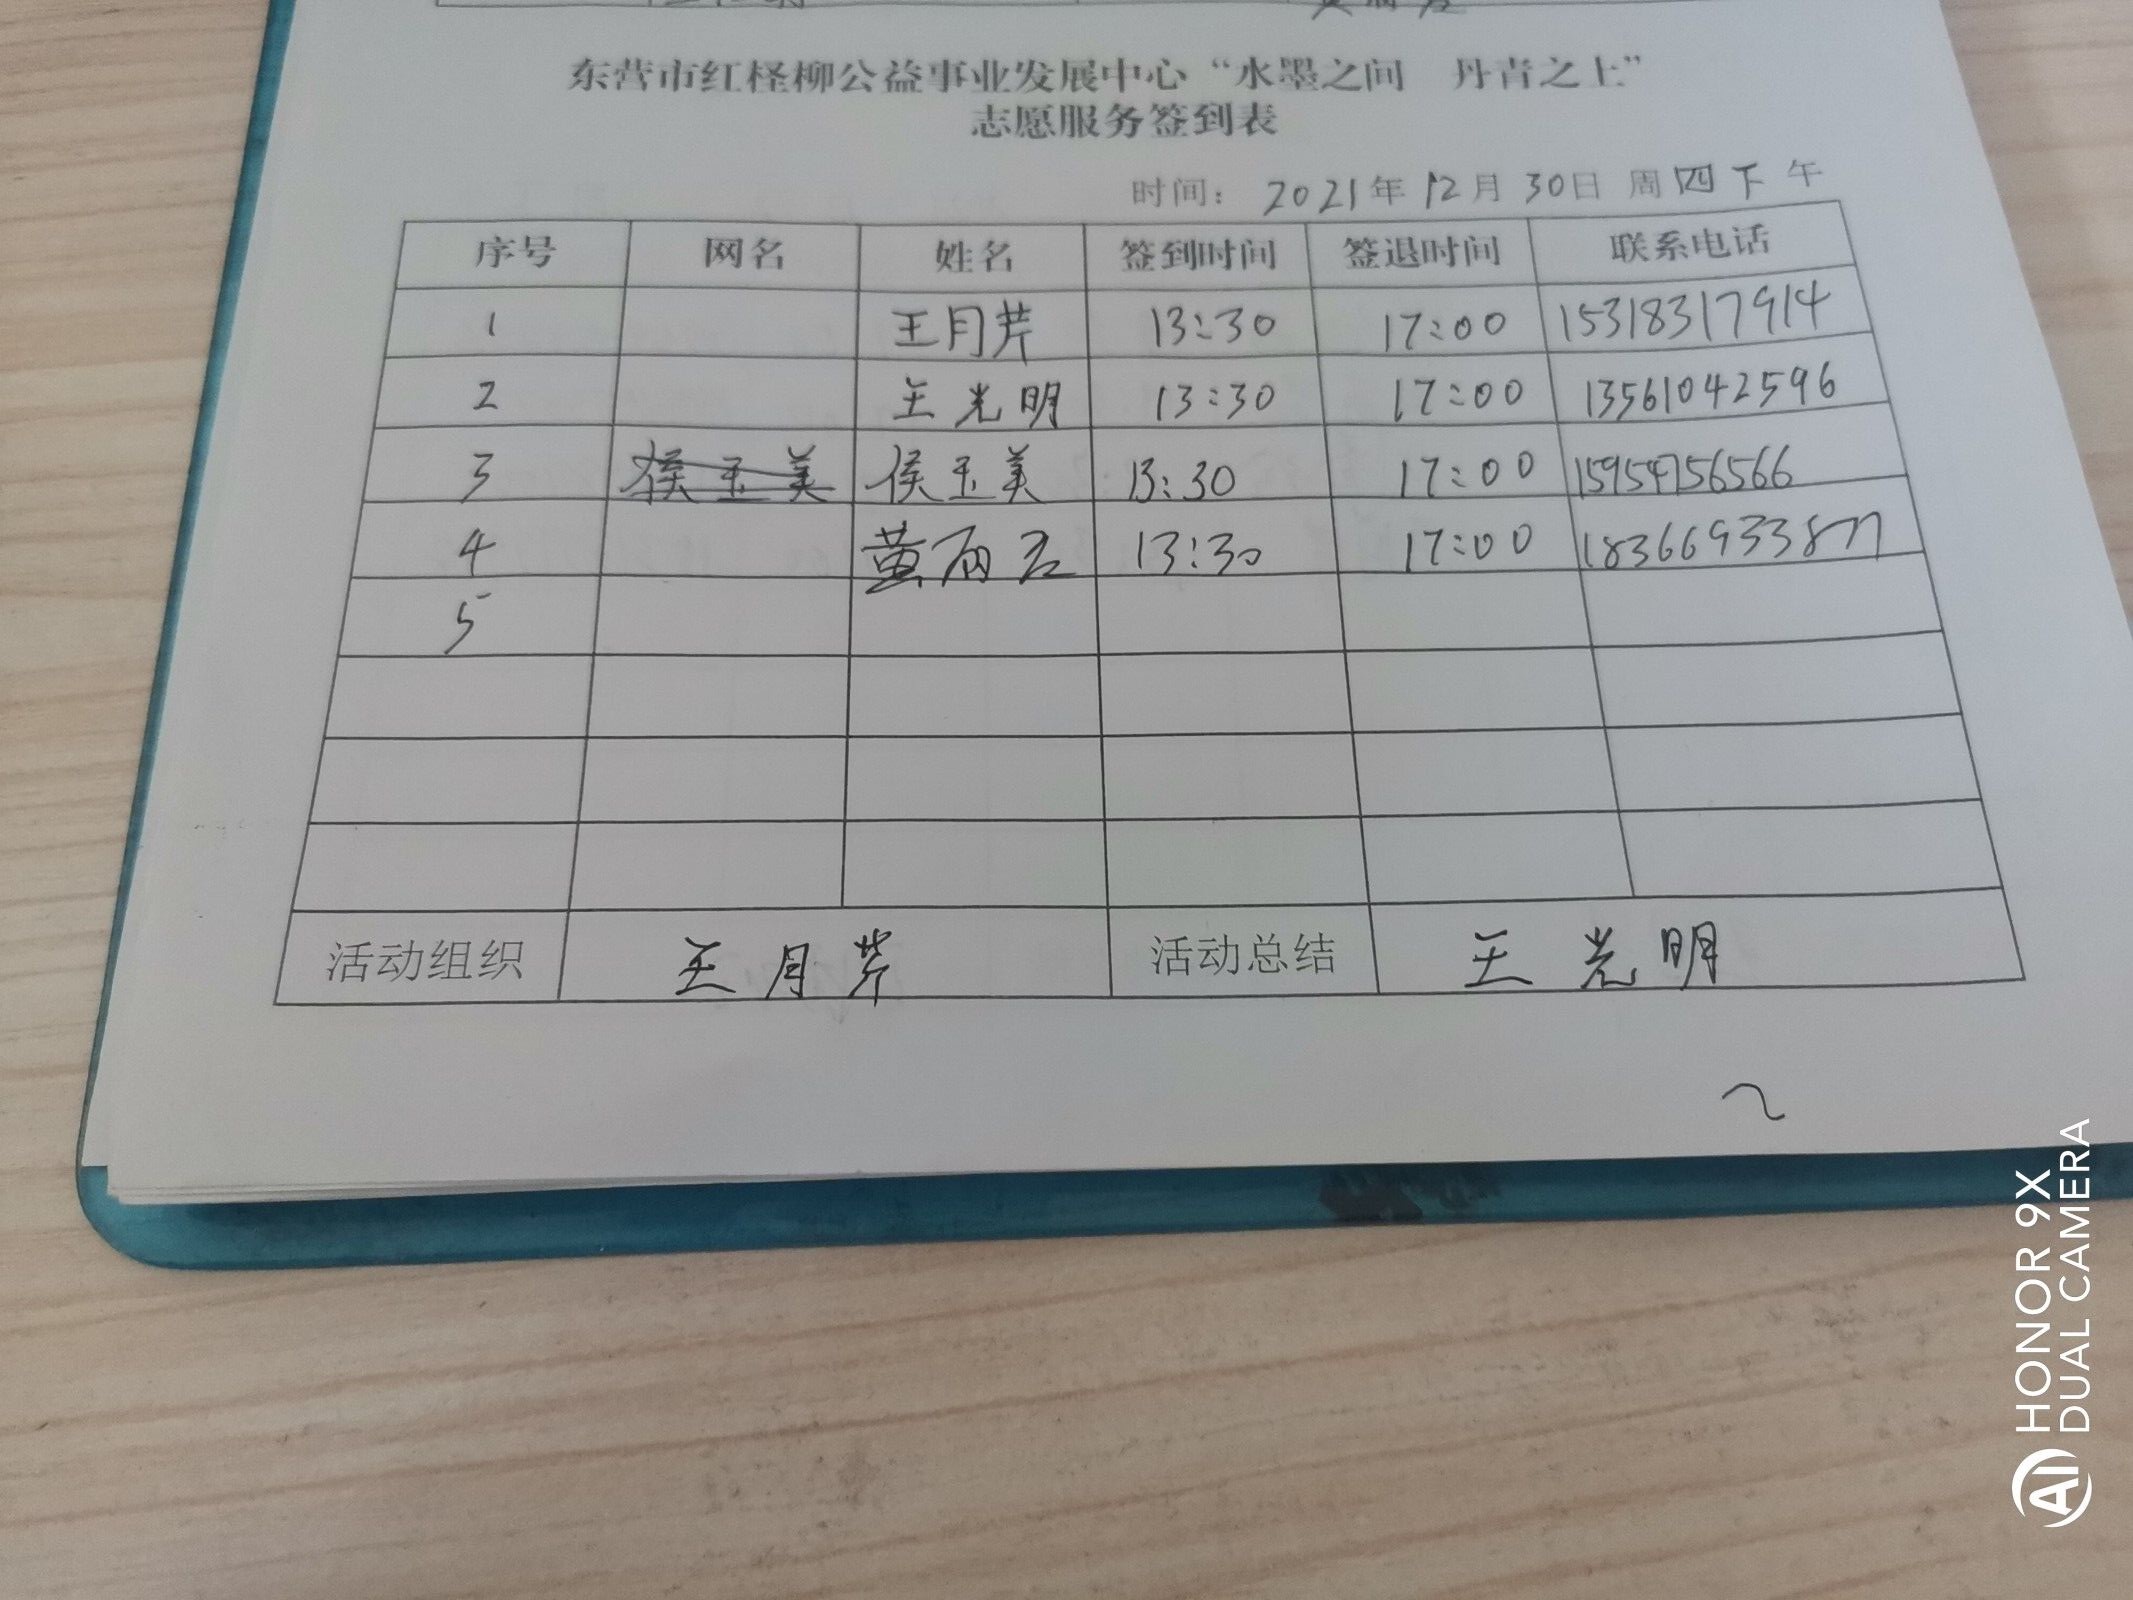 东营市红柽柳公益事业发展中心“水墨之间 丹青之上”
志愿服务签到表
时间: 2021年12月30日 周四下午
序号 网名 姓名 签到时间 签退时间 联系电话
1 王月芹 13:30 17:00 15318317914
2 王光明 13:30 17:00 13561042596
3 侯玉美 侯玉美 13:30 17:00 15954756566
4 黄 13:30 17:00 18366933877
5
活动组织 王月芹 活动总结 王光明
HONOR 9X
DUAL CAMERA
AI